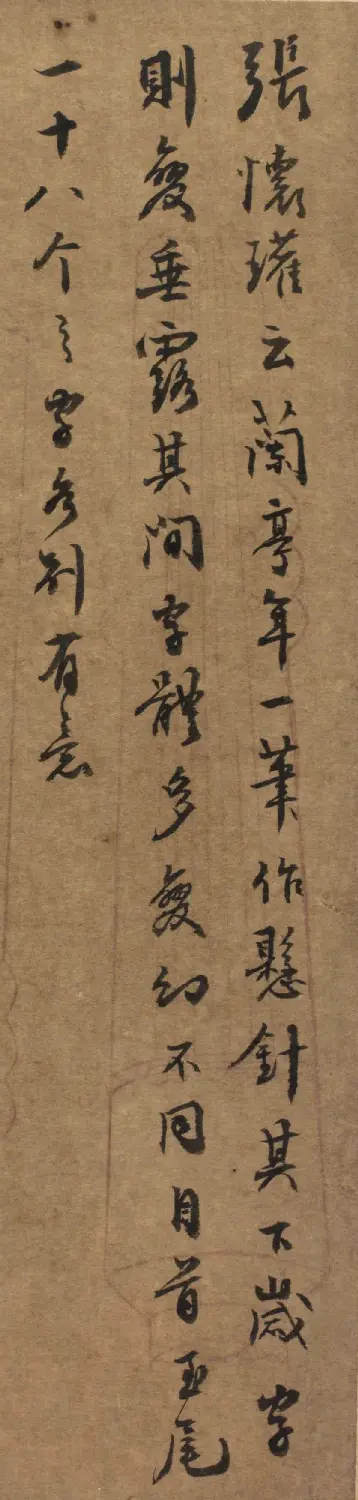 張懷瓘云蘭亭年一筆作懸針其下歲字
則變垂露其間字體多變幻不同自首至尾
一十八个之字各別有意